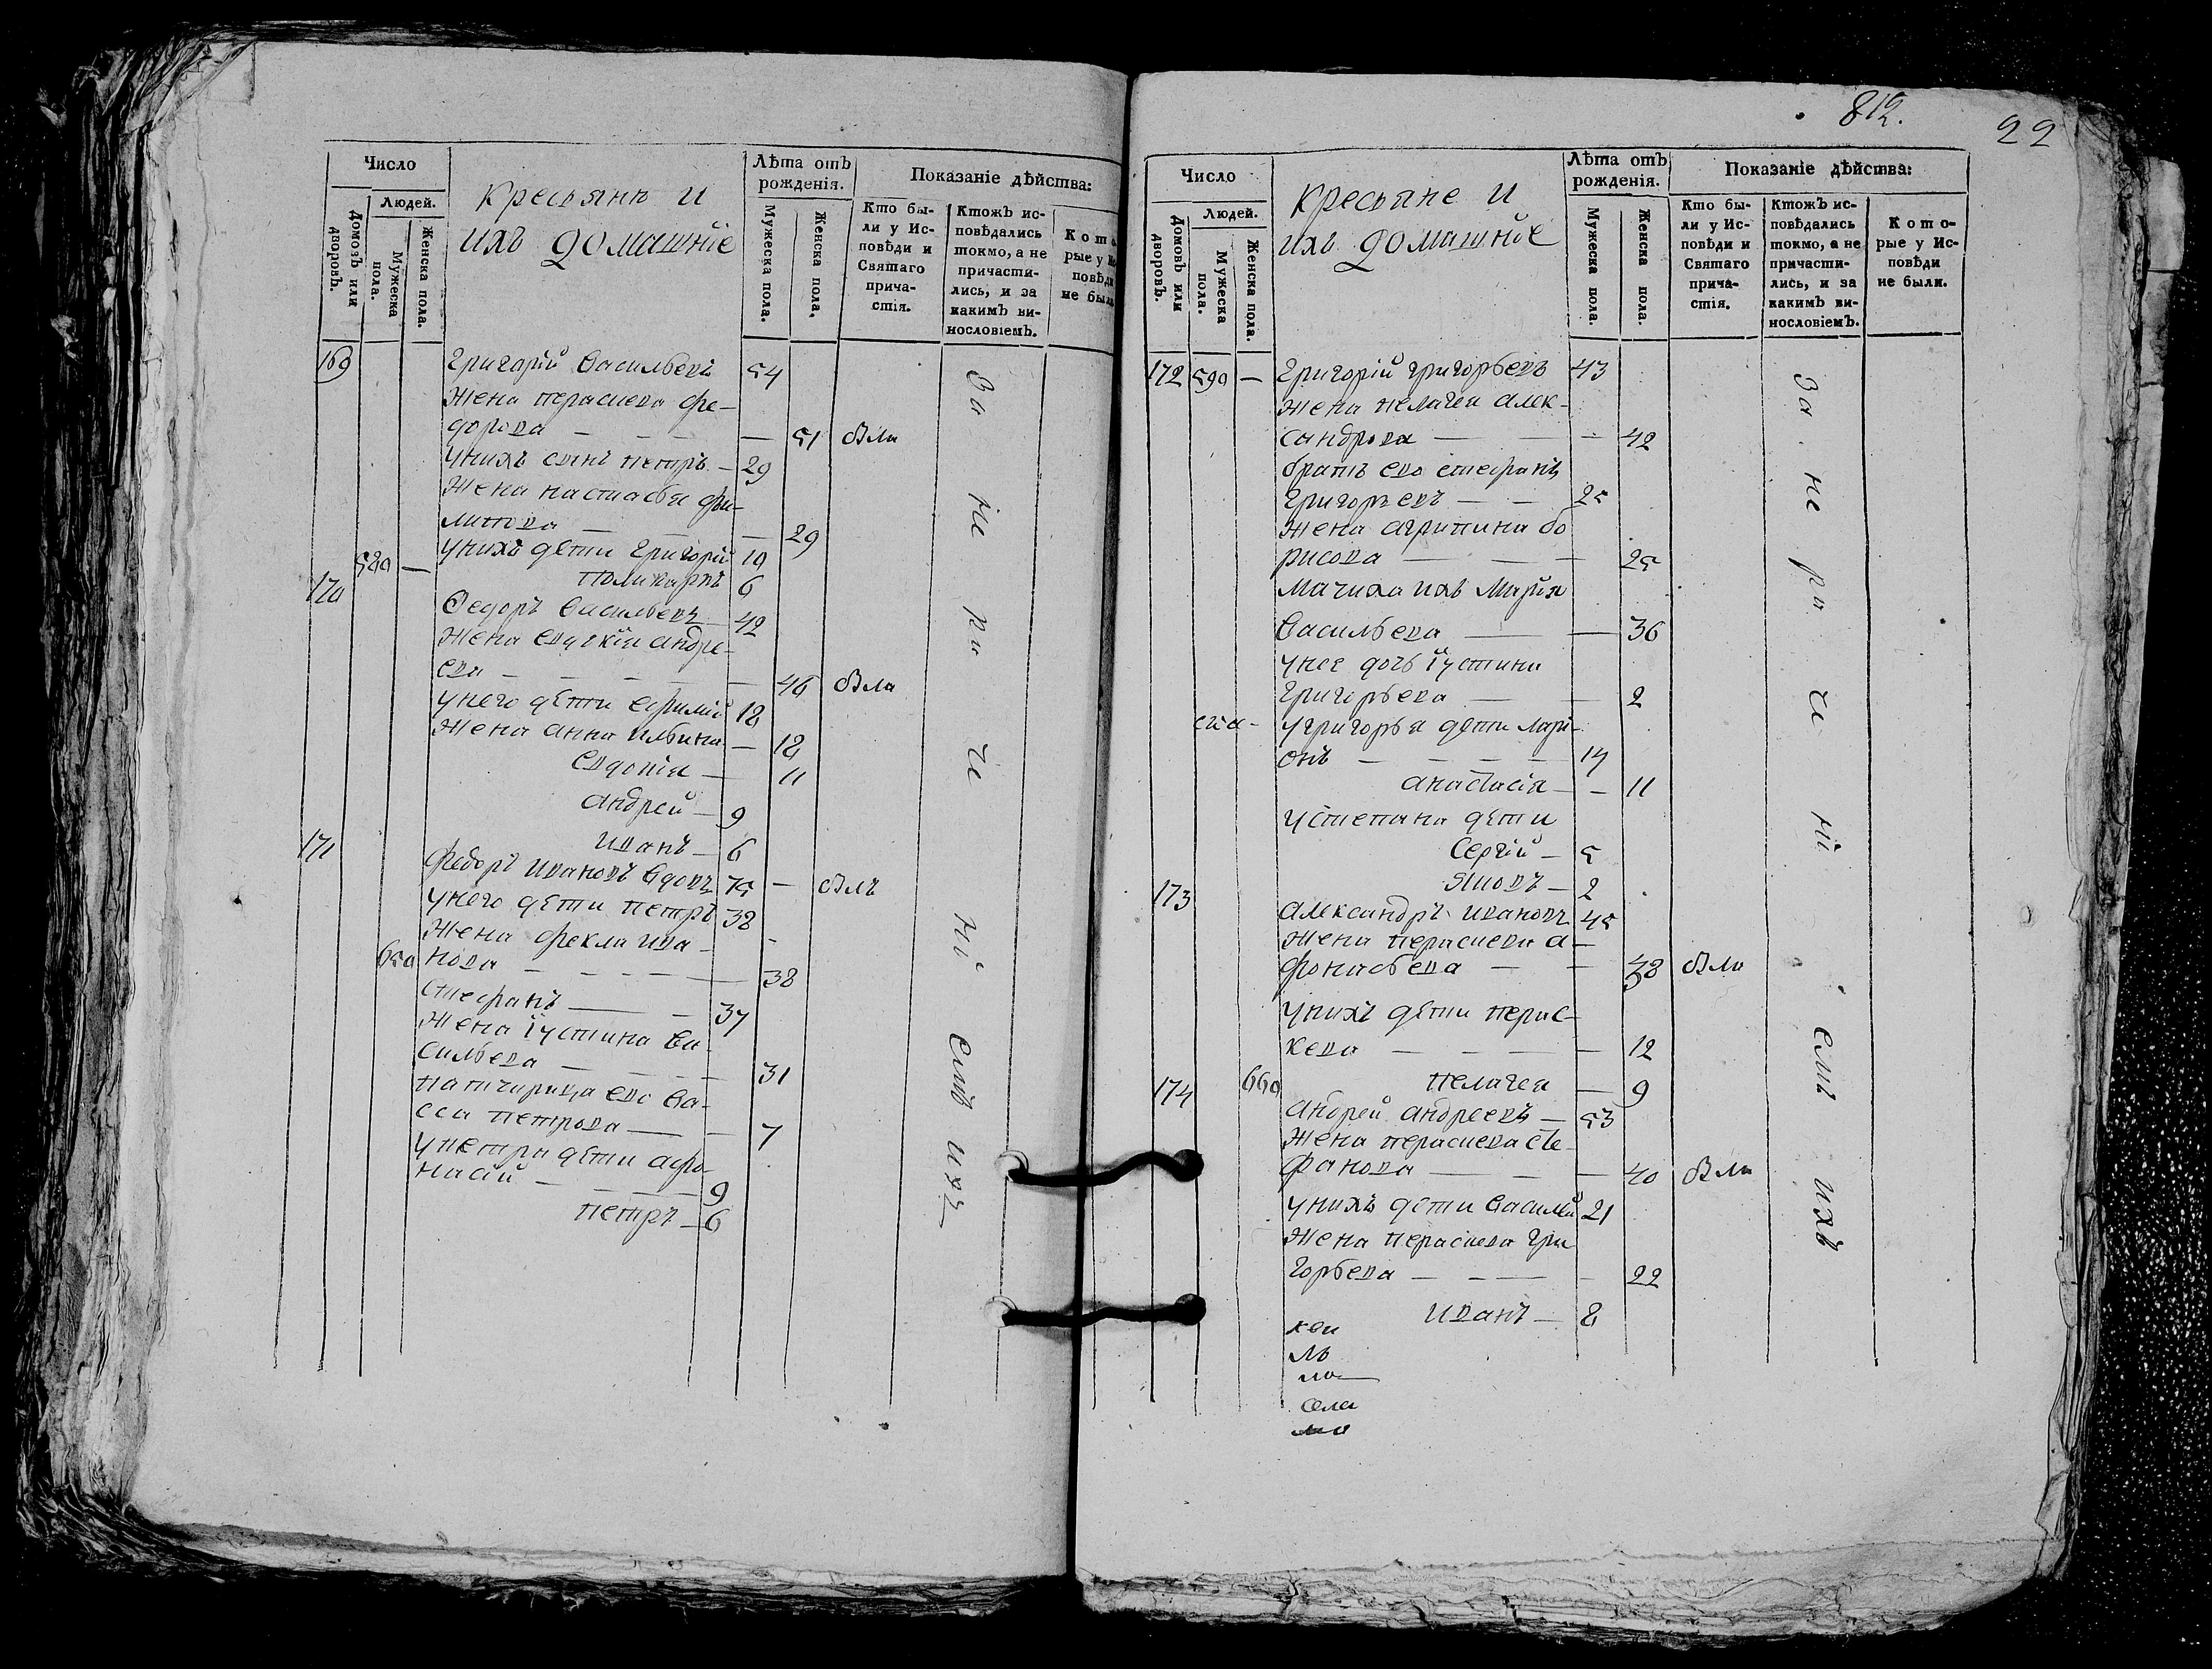 Число
Людей.
Домовъ или дворовъ.
Мужеска пола.
Женска пола.
Кресьянѣ и
ихъ домашніе
Лѣта отъ
рожденія.
Мужеска пола.
Женска пола.
Показаніе дѣйства:
Кто бы-
ли у Ис-
повѣди и
Святаго
прича-
стія.
Ктожъ ис-
повѣдались
токмо, а не
причасти-
лись, и за
какимъ ви-
нословіемъ.
Кото
рые у Ис
повѣди
не были
169 Григорій Васильевъ 54
Жена пераскева Фе-
дорова — 51 была
унихъ сынъ петръ — 29
Жена настасья Фи-
липова — 29
унихъ дети Григорій 10
поликарпъ 6
170 Федоръ Васильевъ 42
Жена Евдокія андре-
ева — 46 была
унего дети Ефимій 18
Жена анна ильина — 18
Евдокія — 11
андрей — 9
иванъ — 6
171 Федоръ ивановъ вдовъ 75 — былъ
унего дети петръ 38
Жена фекла ива-
650 нова — 38
стефанъ — 37
Жена Іустина Ва-
сильева — 31
патчирица ево Ва-
сса петрова — 7
упетра дети афо-
насій — 9
петръ — 6
За не ра че ні емъ ихъ
812.
22
Число
Людей.
Домовъ или дворовъ.
Мужеска пола.
Женска пола.
Кресьяне и
ихъ домашніе
Лѣта отъ
рожденія.
Мужеска пола.
Женска пола.
Показаніе дѣйства:
Кто бы-
ли у Ис-
повѣди и
Святаго
прича-
стія.
Ктожъ ис-
повѣдались
токмо, а не
причасти-
лись, и за
какимъ ви-
нословіемъ.
Кото-
рые у Ис-
повѣди
не были.
172 590 — Григорій григорьевъ 43
Жена пелагеи алек-
сандрова — 42
братъ ево стефанъ
Григорьевъ — 25
Жена агрипина бо
рисова — 25
Мачиха ихъ Марія
Васильева — 36
унее дочь Іустина
Григорьева — 2
угригорья дети лари-
онъ — 14
анастасія — 11
устепана дети
Сергій — 5
яковъ — 2
173 александръ ивановъ 45
Жена пераскева а-
фонасьева — 38 была
унихъ дети перас-
кева — 12
660 пелагея — 9
174 андрей андреевъ — 53
Жена пераскева сте-
фанова — 40 была
унихъ дети Василій 21
Жена пераскева гри
горьева — 22
иванъ — 8
За не ра че ні емъ ихъ